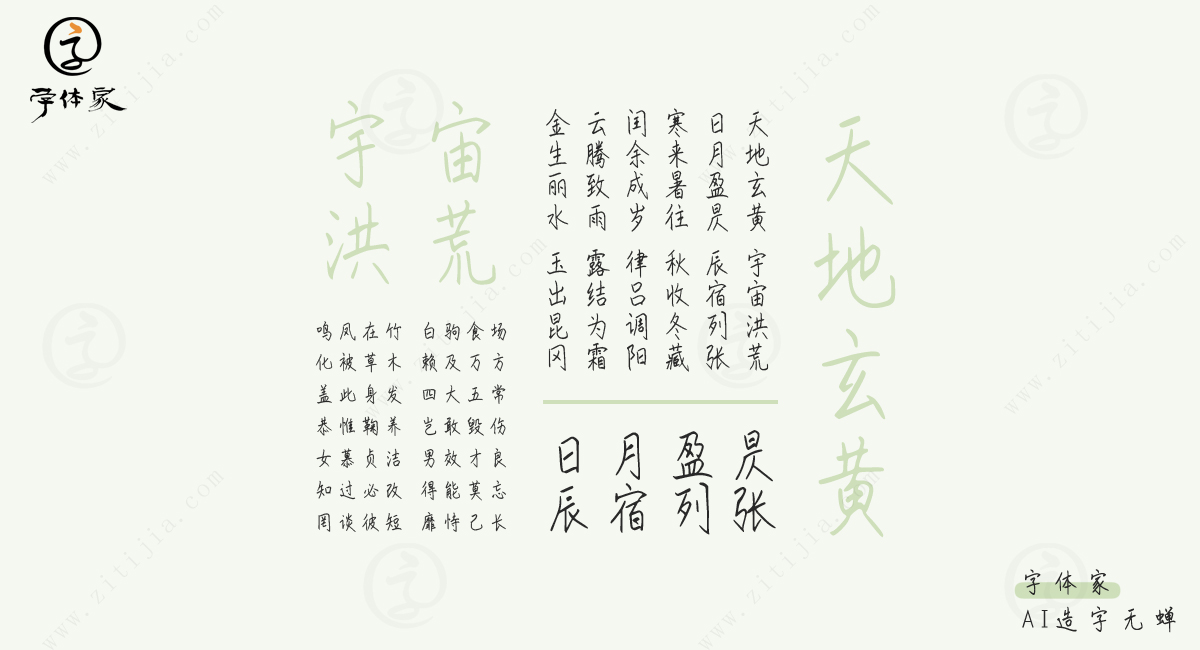 字体家
宇宙
洪荒
鸣凤在竹 白驹食场
化被草木 赖及万方
盖此身发 四大五常
恭惟鞠养 岂敢毁伤
女慕贞洁 男效才良
知过必改 得能莫忘
罔谈彼短 靡恃己长
天地玄黄 宇宙洪荒
日月盈昃 辰宿列张
寒来暑往 秋收冬藏
闰余成岁 律吕调阳
云腾致雨 露结为霜
金生丽水 玉出昆冈
日月盈昃
辰宿列张
天地玄黄
字体家
AI造字无蝉
www.zitijia.com
www.zitijia.com
www.zitijia.com
www.zitijia.com
www.zitijia.com
www.zitijia.com